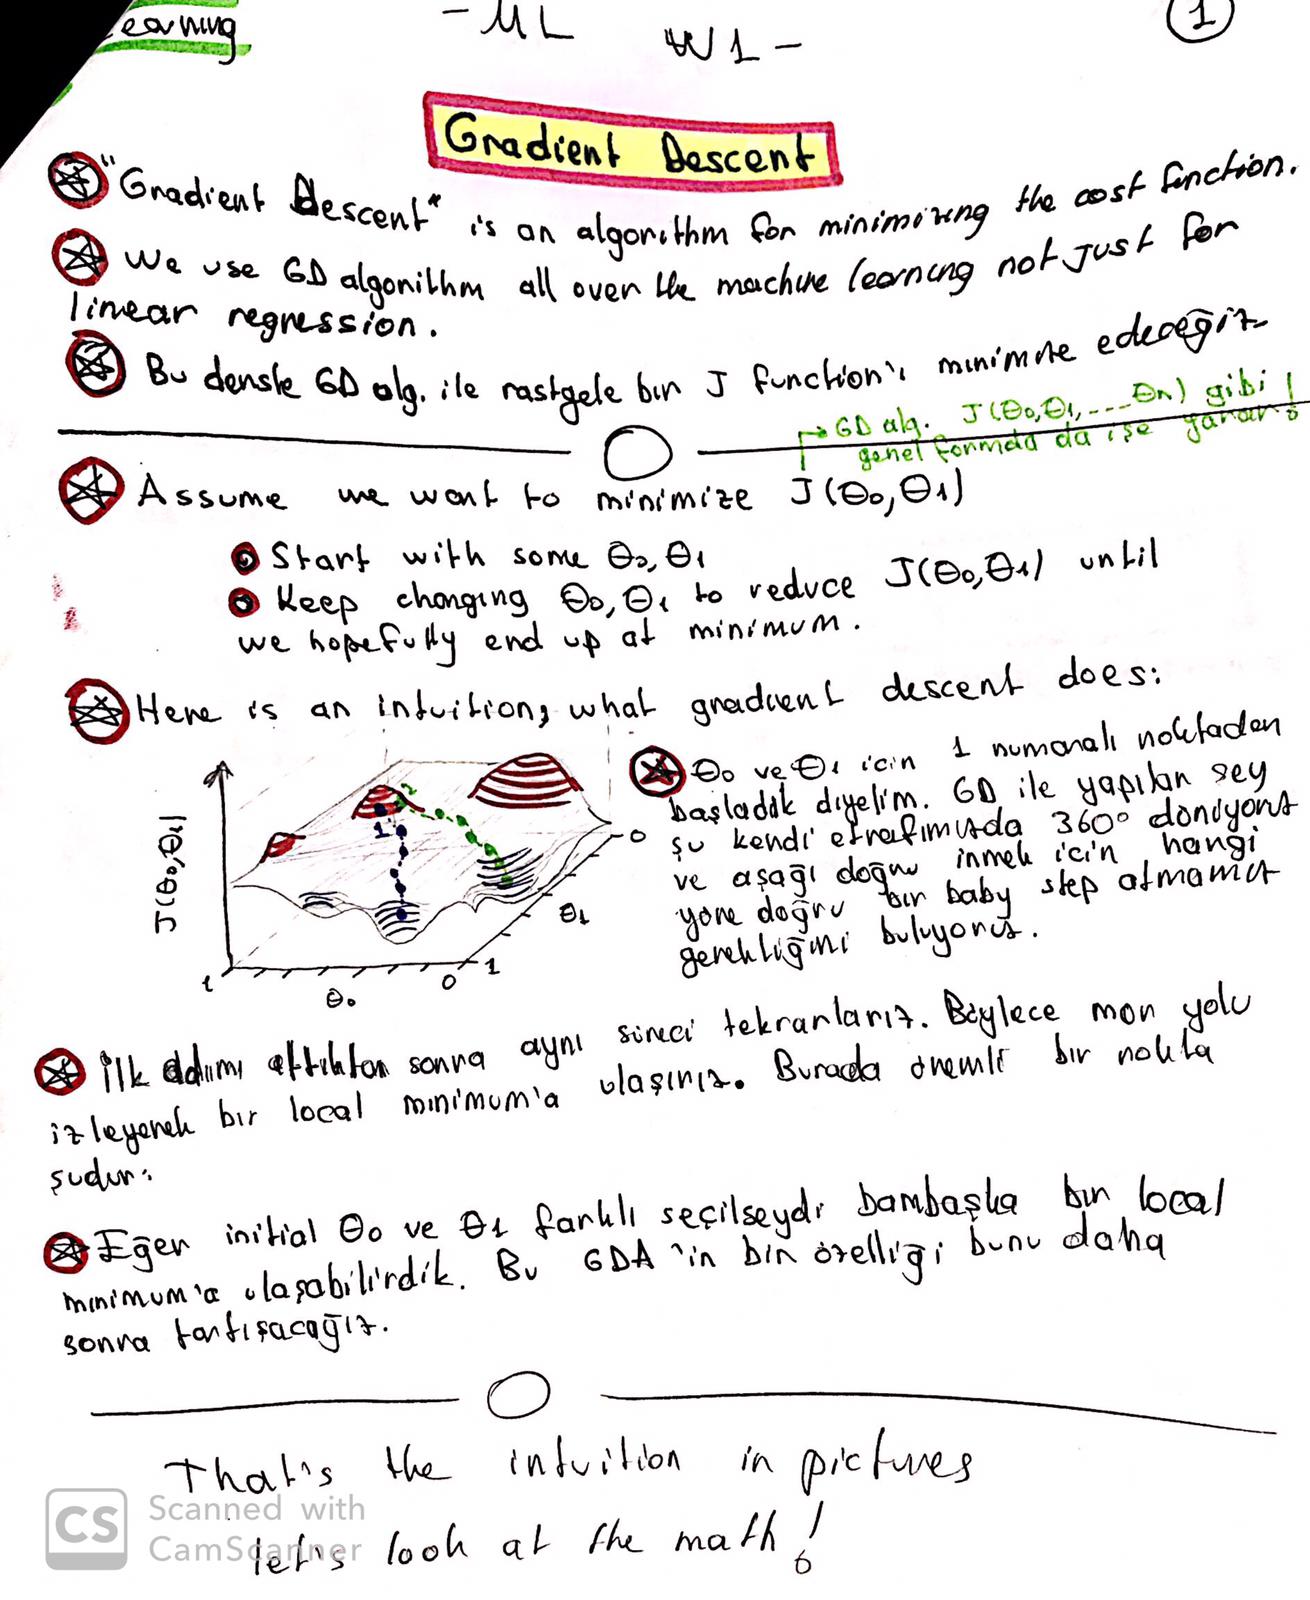 earning
- ML W1 -
1
Gradient Descent
"Gradient Descent" is an algorithm for minimizing the cost function.
We use GD algorithm all over the machine learning not just for
linear regression.
Bu derste GD alg. ile rastgele bir J function'ı minimize edeceğiz.
→ GD alg. J(θ0,θ1,....θn) gibi
genel formda da işe yarar!
Assume we want to minimize J(θ0,θ1)
Start with some θ0,θ1
Keep changing θ0,θ1 to reduce J(θ0,θ1) until
we hopefully end up at minimum.
Here is an intuition, what gradient descent does:
J(θ0,θ1)
1
2
0
θ1
1
0
θ0
1
θ0 ve θ1 için 1 numaralı noktadan
başladık diyelim. GD ile yapılan şey
şu kendi etrafımızda 360° dönüyoruz
ve aşağı doğru inmek için hangi
yöne doğru bir baby step atmamız
gerektiğini buluyoruz.
İlk adımı attıktan sonra aynı süreci tekrarlarız. Böylece mor yolu
izleyerek bir local minimum'a ulaşırız. Burada önemli bir nokta
şudur:
Eğer initial θ0 ve θ1 farklı seçilseydi bambaşka bir local
minimum'a ulaşabilirdik. Bu GDA'in bir özelliği bunu daha
sonra tartışacağız.
That's the intuition in pictures
let's look at the math!
CS Scanned with
CamScanner